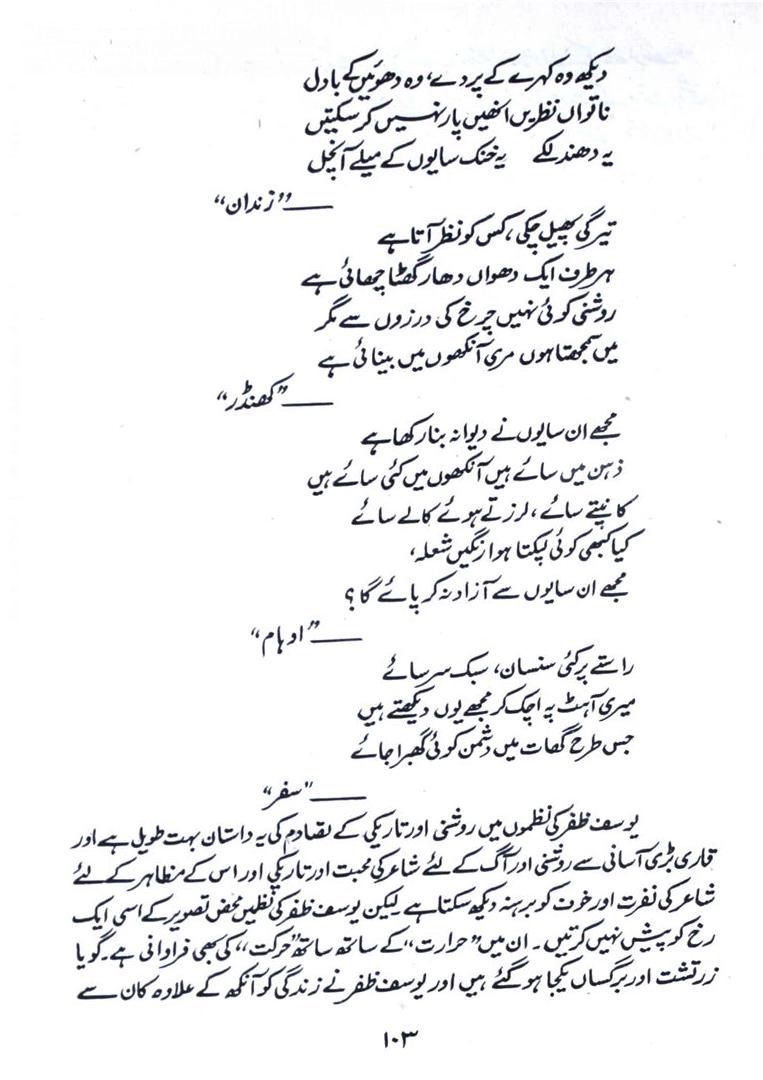 دیکھ وہ کہرے کے پردے، وہ دھوئیں کے بادل
ناتواں نظریں انھیں پار نہیں کر سکتیں
یہ دھندلکے یہ خنک سایوں کے میلے آنچل
——”زندان“
تیرگی پھیل چکی، کس کو نظر آتا ہے
ہر طرف ایک دھواں دھار گھٹا چھائی ہے
روشنی کوئی نہیں چرخ کی درزوں سے مگر
میں سمجھتا ہوں مری آنکھوں میں بینائی ہے
——”کھنڈر“
مجھے ان سایوں نے دیوانہ بنا رکھا ہے
ذہن میں سائے ہیں آنکھوں میں کئی سائے ہیں
کانپتے سائے، لرزتے ہوئے کالے سائے
کیا کبھی کوئی لپکتا ہوا رنگیں شعلہ،
مجھے ان سایوں سے آزاد نہ کر پائے گا؟
——”اوہام“
راستے پر کئی سنسان، سبک سر سائے
میری آہٹ پہ اچک کر مجھے یوں دیکھتے ہیں
جس طرح گھات میں دشمن کوئی گھبرا جائے
——”سفر“
یوسف ظفر کی نظموں میں روشنی اور تاریکی کے تصادم کی یہ داستان بہت طویل ہے اور
قاری بڑی آسانی سے روشنی اور آگ کے لئے شاعر کی محبت اور تاریکی اور اس کے مظاہر کے لئے
شاعر کی نفرت اور خوف کو برہنہ دیکھ سکتا ہے لیکن یوسف ظفر کی نظمیں محض تصویر کے اسی ایک
رخ کو پیش نہیں کرتیں۔ ان میں ”حرارت“ کے ساتھ ساتھ ”حرکت“ کی بھی فراوانی ہے۔ گویا
زرتشت اور برگساں یکجا ہو گئے ہیں اور یوسف ظفر نے زندگی کو آنکھ کے علاوہ کان سے
۱۰۳